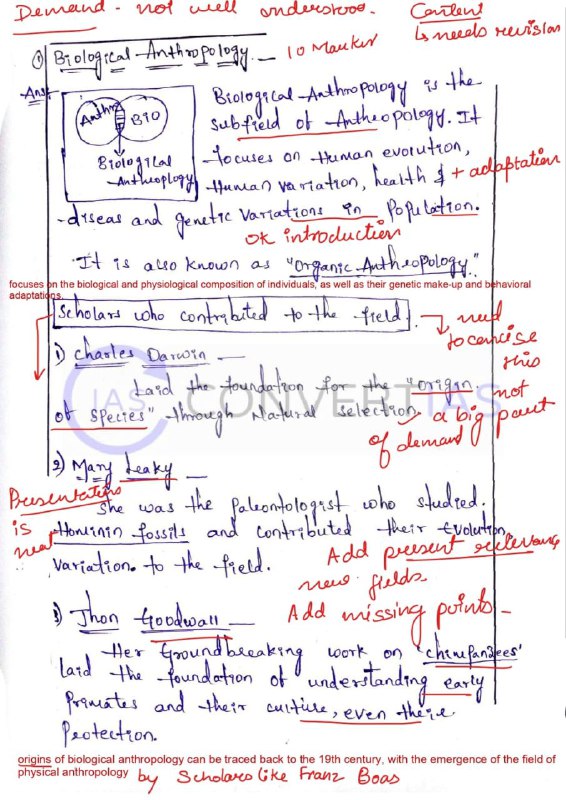 Demand - not well understood.
Content
↳ needs revision
① Biological Anthropology - 10 Marker
Ans
Anthro
Bio
Biological
Antheoplogy
Biological Anthropology is the
subfield of Antheopology. It
focuses on Human evolution,
Human variation, health &
+ adaptation
diseas and genetic variations in Population.
OK introduction
It is also known as "Organic Antheopology."
focuses on the biological and physiological composition of individuals, as well as their genetic make-up and behavioral
adaptations.
Scholars who contributed to the field.
need
to concise
this
not
a big part
of demand
1) Charles Darwin -
Laid the foundation for the "origin
of species" through Natural selection
IAS CONVERTIAS
2) Mary Leaky -
Presentation
is
neat
She was the Paleontologist who studied.
Hominin fossils and contributed their Evolution
Variation. to the field.
Add present relevance
new fields
Add missing points -
3) Jhon Goodwall -
Her Groundbreaking work on 'chimpanzees'
laid the foundation of understanding early
Primates and their culture, even their
Protection.
origins of biological anthropology can be traced back to the 19th century, with the emergence of the field of
physical anthropology
by Scholars like Franz Boas